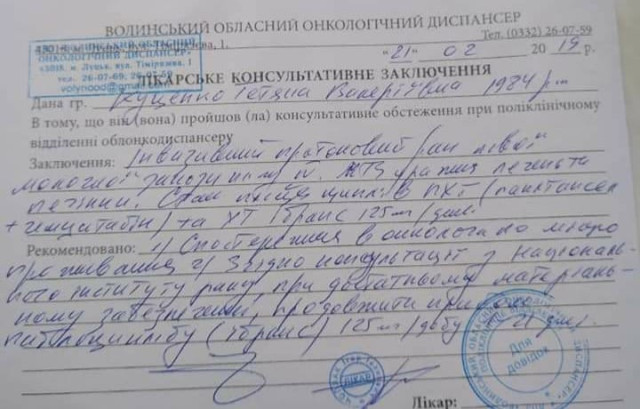 ВОЛИНСЬКИЙ ОБЛАСНИЙ ОНКОЛОГІЧНИЙ ДИСПАНСЕР
Тел. (0332) 26-07-59
ОНКОЛОГІЧНИЙ ДИСПАНСЕР"
43018, м. Луцьк, вул. Тімірязєва, 1
тел. 26-07-69, 26-07-59
"21" 02 2019 р.
ЛІКАРСЬКЕ КОНСУЛЬТАТИВНЕ ЗАКЛЮЧЕННЯ
Дана гр. Тетяна Валеріївна 1984 р.
В тому, що він (вона) пройшов (ла) консультативне обстеження при поліклінічному
відділенні облонкодиспансеру
Заключення: Інвазивний протоковий рак лівої
молочної залози IV. МТS печінки та
Стан після циклів ПХТ (паклітаксел
+ гемцитабін) та ХТ Ібранс 125 мг/
Рекомендовано: 1) Спостереження в онколога по місцю
проживання 2) Згідно консультації з Національ-
ного інституту раку, при достатньому матеріаль-
ному забезпеченні, продовжити прийом
палбоциклібу (Ібранс) 125 мг/добу 21 день.
Для довідок
ЛІКАР
Лікар: